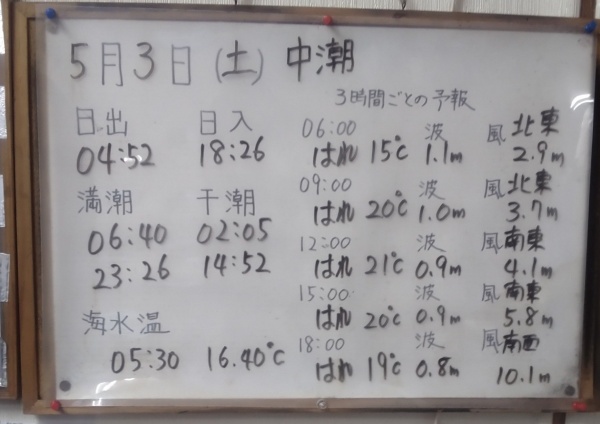 5月3日(土) 中潮
日出 日入
04:52 18:26
満潮 干潮
06:40 02:05
23:26 14:52
海水温
05:30 16.40℃
3時間ごとの予報
06:00 波 風 北東
はれ 15℃ 1.1m 2.9m
09:00 波 風 北東
はれ 20℃ 1.0m 3.7m
12:00 波 風 南東
はれ 21℃ 0.9m 4.1m
15:00 波 風 南東
はれ 20℃ 0.9m 5.8m
18:00 波 風 南西
はれ 19℃ 0.8m 10.1m